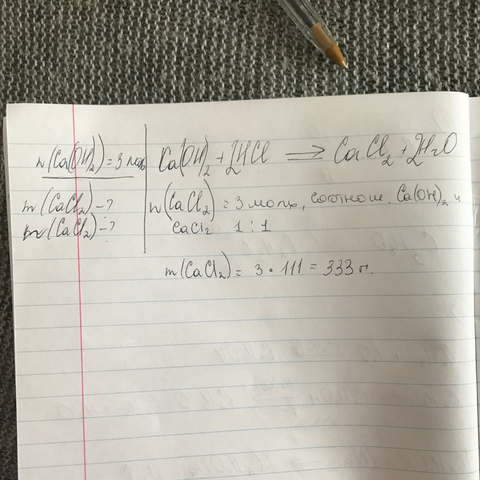 n(Ca(OH)₂) = 3 моль
m(CaCl₂) - ?
n(CaCl₂) - ?
Ca(OH)₂ + 2HCl ⇒ CaCl₂ + 2H₂O
n(CaCl₂) = 3 моль, соотнош. Ca(OH)₂ и
CaCl₂ 1 : 1
m(CaCl₂) = 3 • 111 = 333 г.